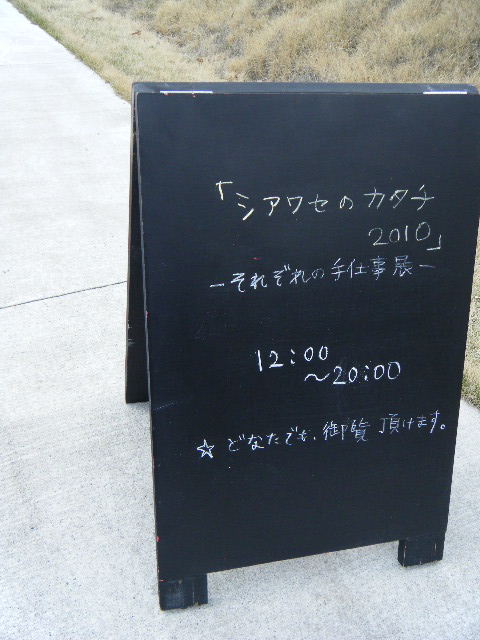 「シアワセのカタチ
2010」
－それぞれの手仕事展－
12:00
～20:00
☆どなたでも、御覧頂けます。